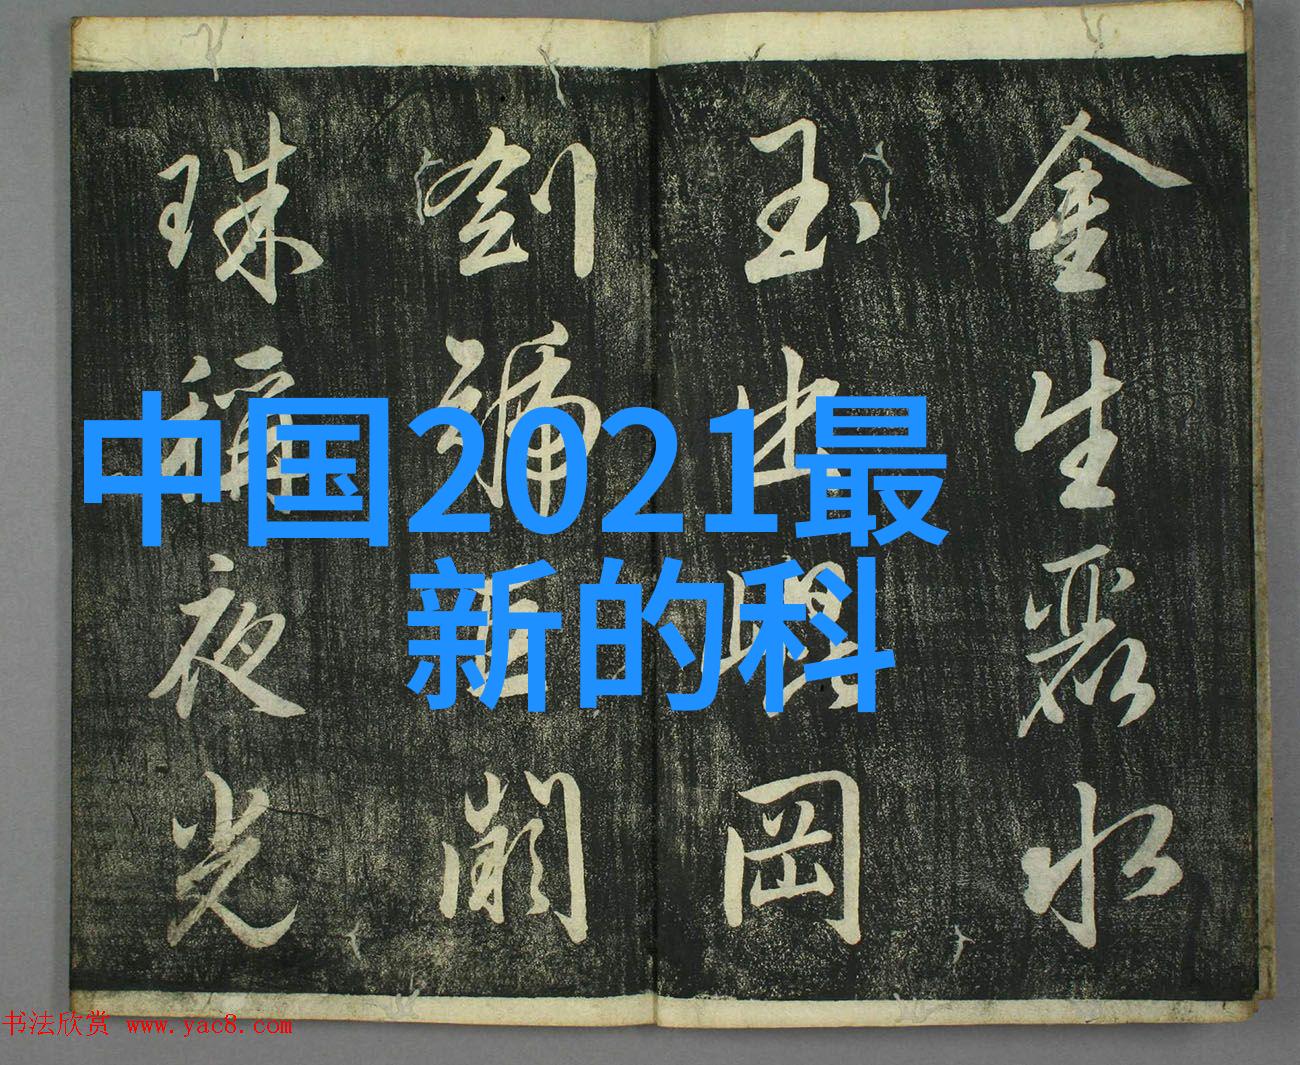 金生麗水
玉出崐岡
劍號巨闕
珠稱夜光
中国2021最
新的科
书法欣赏 www.yac8.com